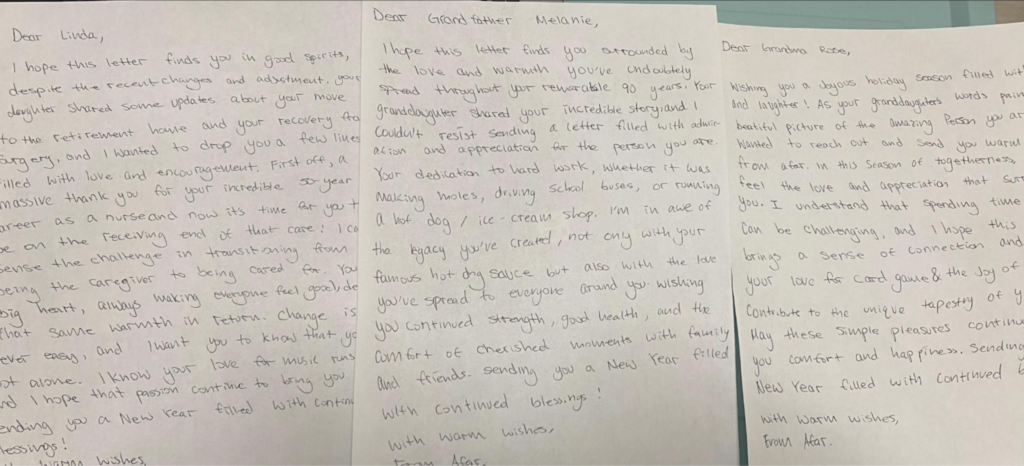 Dear Linda,
I hope this letter finds you in good spirits,
despite the recent changes and adjustment. your
daughter shared some updates about your move
to the retirement house and your recovery
surgery, and I wanted to drop you a few lines
filled with love and encouragement. First off, a
massive thank you for your incredible 50-year
career as a nurse and now its time for you t
be on the receiving end of that care! I ca
sense the challenge in transitioning from
being the caregiver to being cared for. You
big heart, always making everyone feel good, de
that same warmth in return. Change is
ever easy, and I want you to know that yo
ot alone. I know your love for music runs
nd I hope that passion continue to bring you
ending you a New Year filled with contin
lessings!
warm wishes,
Dear Grandfather Melanie,
I hope this letter finds you surrounded by
the love and warmth you've undoubtely
spread throughout your remarable 90 years. Your
granddaughter shared your incredible story and I
couldn't resist sending a letter filled with admir-
ation and appreciation for the person you are.
Your dedication to hard work, whether it was
making moles, driving school buses, or running
a hot dog / ice-cream shop. I'm in awe of
the legacy you've created, not only with your
famous hot dog sauce but also with the love
you've spread to everyone around you. wishing
you continued strength, good health, and the
comfort of cherished moments with family
and friends. sending you a New Year filled
with continued blessings!
with warm wishes,
From Afar.
Dear Grandma Rose,
Wishing you a Joyous holiday season filled wit
And laughter! As your granddaughters words pain
beatiful picture of the amazing Person you are
wanted to reach out and send you warm
from afar. in this season of togetherness,
feel the love and appreciation that sur
you. I understand that spending time
can be challenging, and I hope this
brings a sense of connection and
your love for card game & the Joy of
contribute to the unique tapestry of y
May these simple pleasures continu
you comfort and happiness. Sending
New Year filled with continued b
with warm wishes,
From Afar.